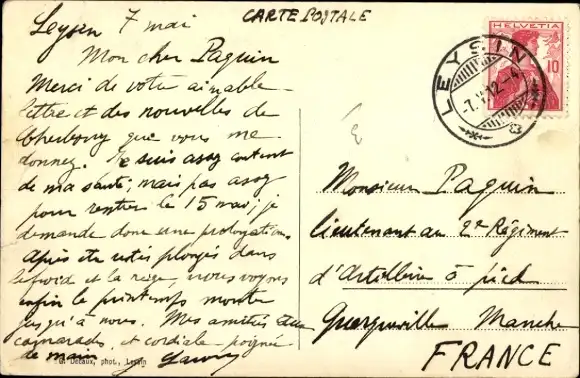 CARTE POSTALE
Leysin 7 mai
Mon cher Paquin
Merci de votre aimable
lettre et des nouvelles de
Cherbourg que vous me
donnez. Je suis assez content
de ma santé, mais pas assez
pour rentrer le 15 mai; je
demande donc une prolongation.
Après être restés plongés dans
le froid et la neige, nous voyons
enfin le printemps monter
jusqu'à nous. Mes amitiés aux
camarades, et cordiale poignée
de main
G. Decaux, phot., Leysin
HELVETIA
10
LEYSIN
-7.V.12.-4
Monsieur Paquin
lieutenant au 2e Régiment
d'Artillerie à pied
Querqueville Manche
FRANCE